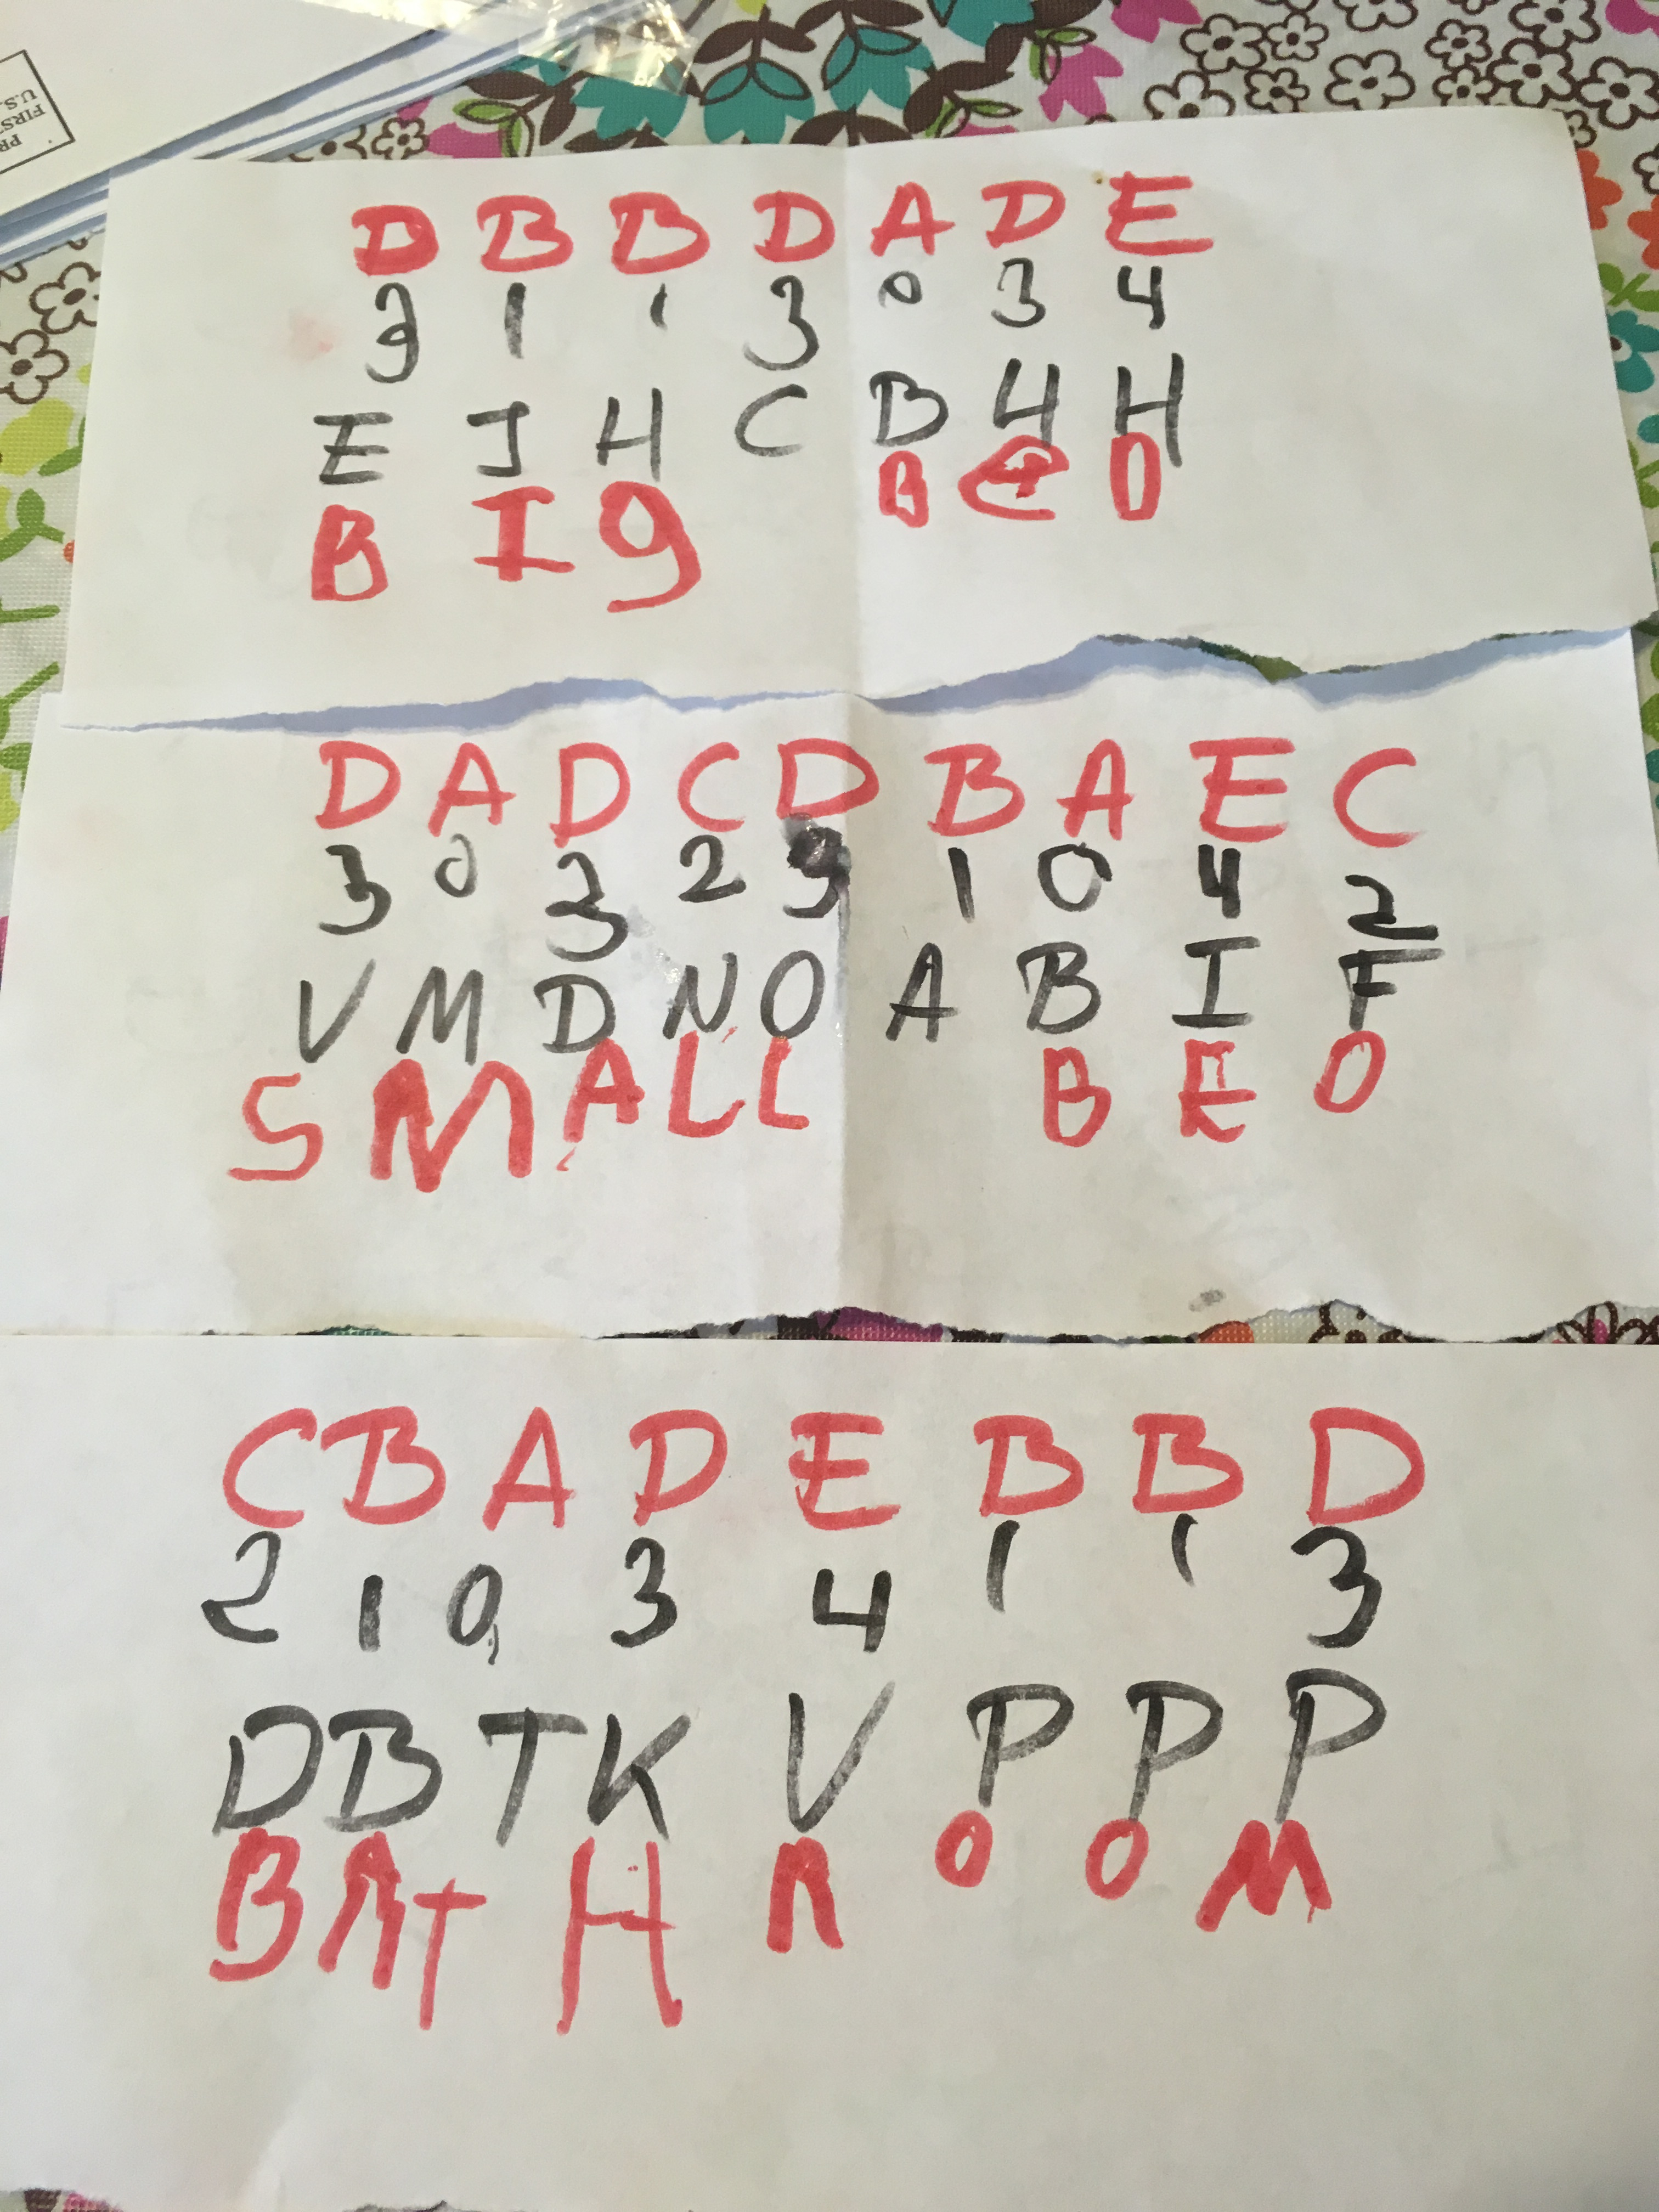 PR
FIRST
U.S.
D B B D A D E
3 1 1 3 0 3 4
E J H C B H H
B I g B E D
D A D C D B A E C
3 0 3 2 3 1 0 4 2
V M D N O A B I F
S M A L L B E D
C B A D E B B D
2 1 0 3 4 1 1 3
D B T K V P P P
B A t H R O O M